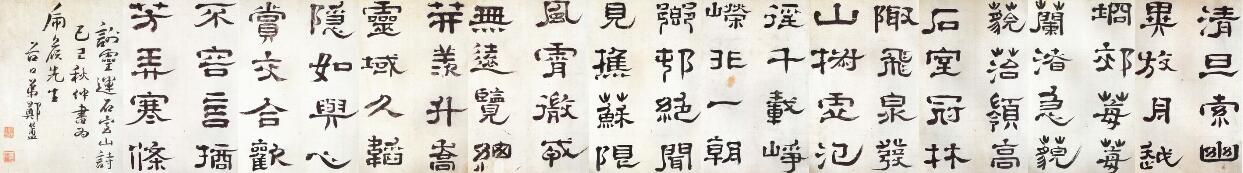 清旦索幽
異放月越
坰郊莓莓
蘭渚急藐
藐苔嶺高
石室冠林
陬飛泉發
山椒虛泛
徑千載崢
嶸非一朝
鄉邨絕聞
見樵蘇限
風霄微戎
無遠覽總
笄羨升喬
靈域久韜
隱如與心
賞交合歡
不容言摘
芳弄寒條
謝靈運石室山詩
己巳秋仲書為
先生
谷口弟鄭簠